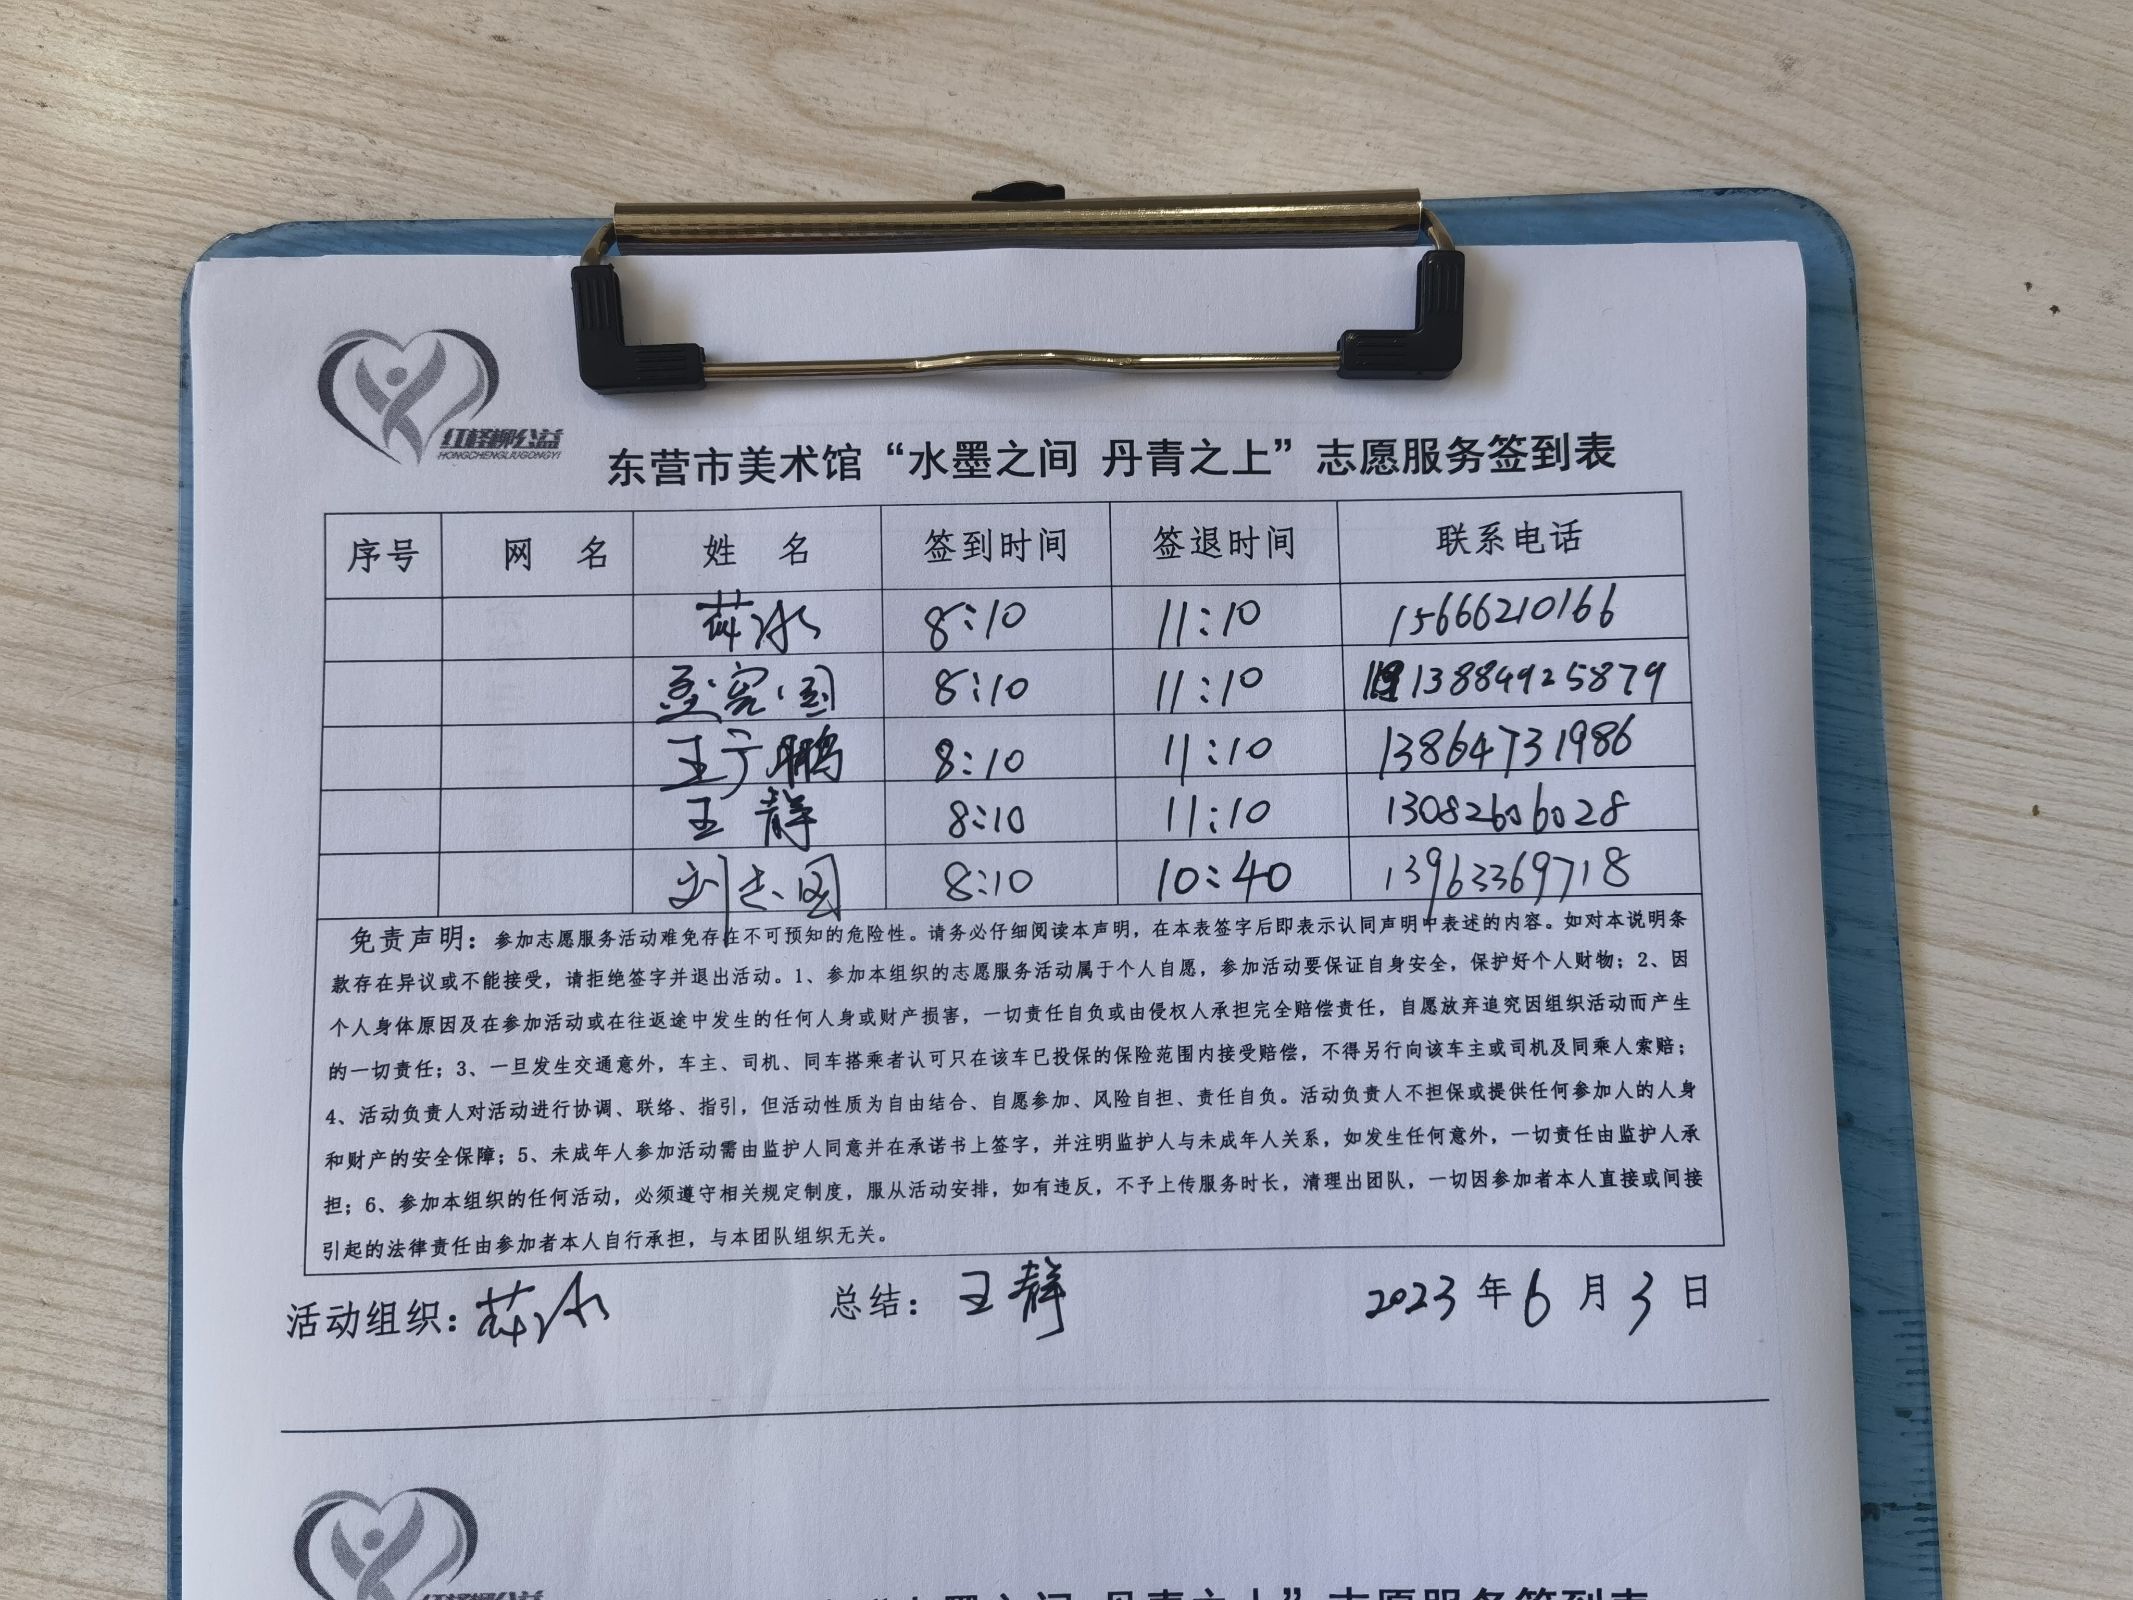 红柽柳公益
HONGCHENGLIUGONGYI
东营市美术馆“水墨之间 丹青之上”志愿服务签到表
序号 网 名 姓 名 签到时间 签退时间 联系电话
8:10 11:10 15666210166
国 8:10 11:10 13884925879
王广鹏 8:10 11:10 13864731986
王静 8:10 11:10 13082606028
刘志国 8:10 10:40 13963369718
免责声明：参加志愿服务活动难免存在不可预知的危险性。请务必仔细阅读本声明，在本表签字后即表示认同声明中表述的内容。如对本说明条
款存在异议或不能接受，请拒绝签字并退出活动。1、参加本组织的志愿服务活动属于个人自愿，参加活动要保证自身安全，保护好个人财物；2、因
个人身体原因及在参加活动或在往返途中发生的任何人身或财产损害，一切责任自负或由侵权人承担完全赔偿责任，自愿放弃追究因组织活动而产生
的一切责任；3、一旦发生交通意外，车主、司机、同车搭乘者认可只在该车已投保的保险范围内接受赔偿，不得另行向该车主或司机及同乘人索赔；
4、活动负责人对活动进行协调、联络、指引，但活动性质为自由结合、自愿参加、风险自担、责任自负。活动负责人不担保或提供任何参加人的人身
和财产的安全保障；5、未成年人参加活动需由监护人同意并在承诺书上签字，并注明监护人与未成年人关系，如发生任何意外，一切责任由监护人承
担；6、参加本组织的任何活动，必须遵守相关规定制度，服从活动安排，如有违反，不予上传服务时长，清理出团队，一切因参加者本人直接或间接
引起的法律责任由参加者本人自行承担，与本团队组织无关。
活动组织： 总结：王静 2023年6月3日
红柽柳公益
“水墨之间 丹青之上”志愿服务签到表